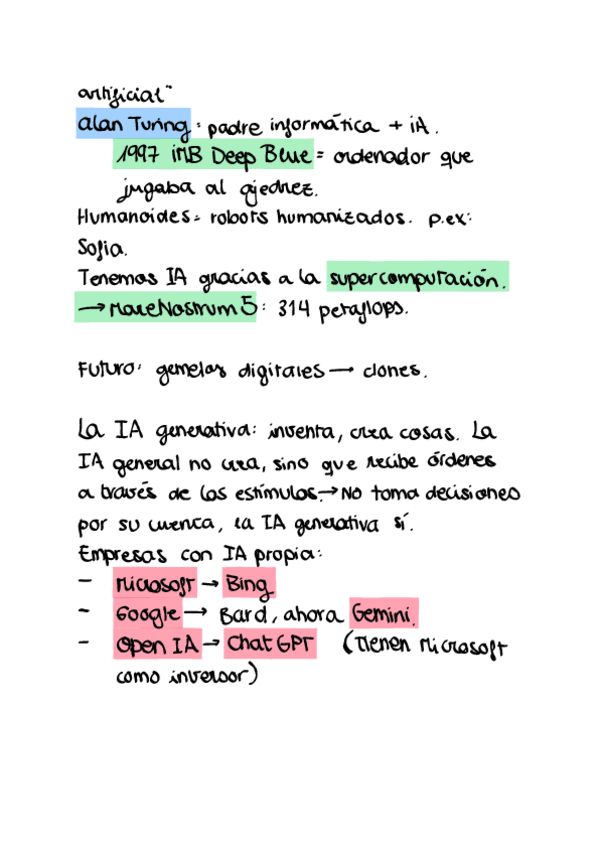 artificial"
Alan Turing: padre informática + iA.
1997 iMB Deep Blue = ordenador que
jugaba al ajedrez.
Humanoides = robots humanizados. p.ex:
Sofia.
Tenemos IA gracias a la supercomputación.
→ MareNostrum 5: 314 petaflops.
Futuro: gemelos digitales → clones.
La IA generativa: inventa, crea cosas. La
IA general no crea, sino que recibe órdenes
a través de los estímulos. → No toma decisiones
por su cuenta, la IA generativa sí.
Empresas con IA propia:
- Microsoft → Bing
- Google → Bard, ahora Gemini.
- Open IA → Chat GPT (Tienen Microsoft
como inversor)